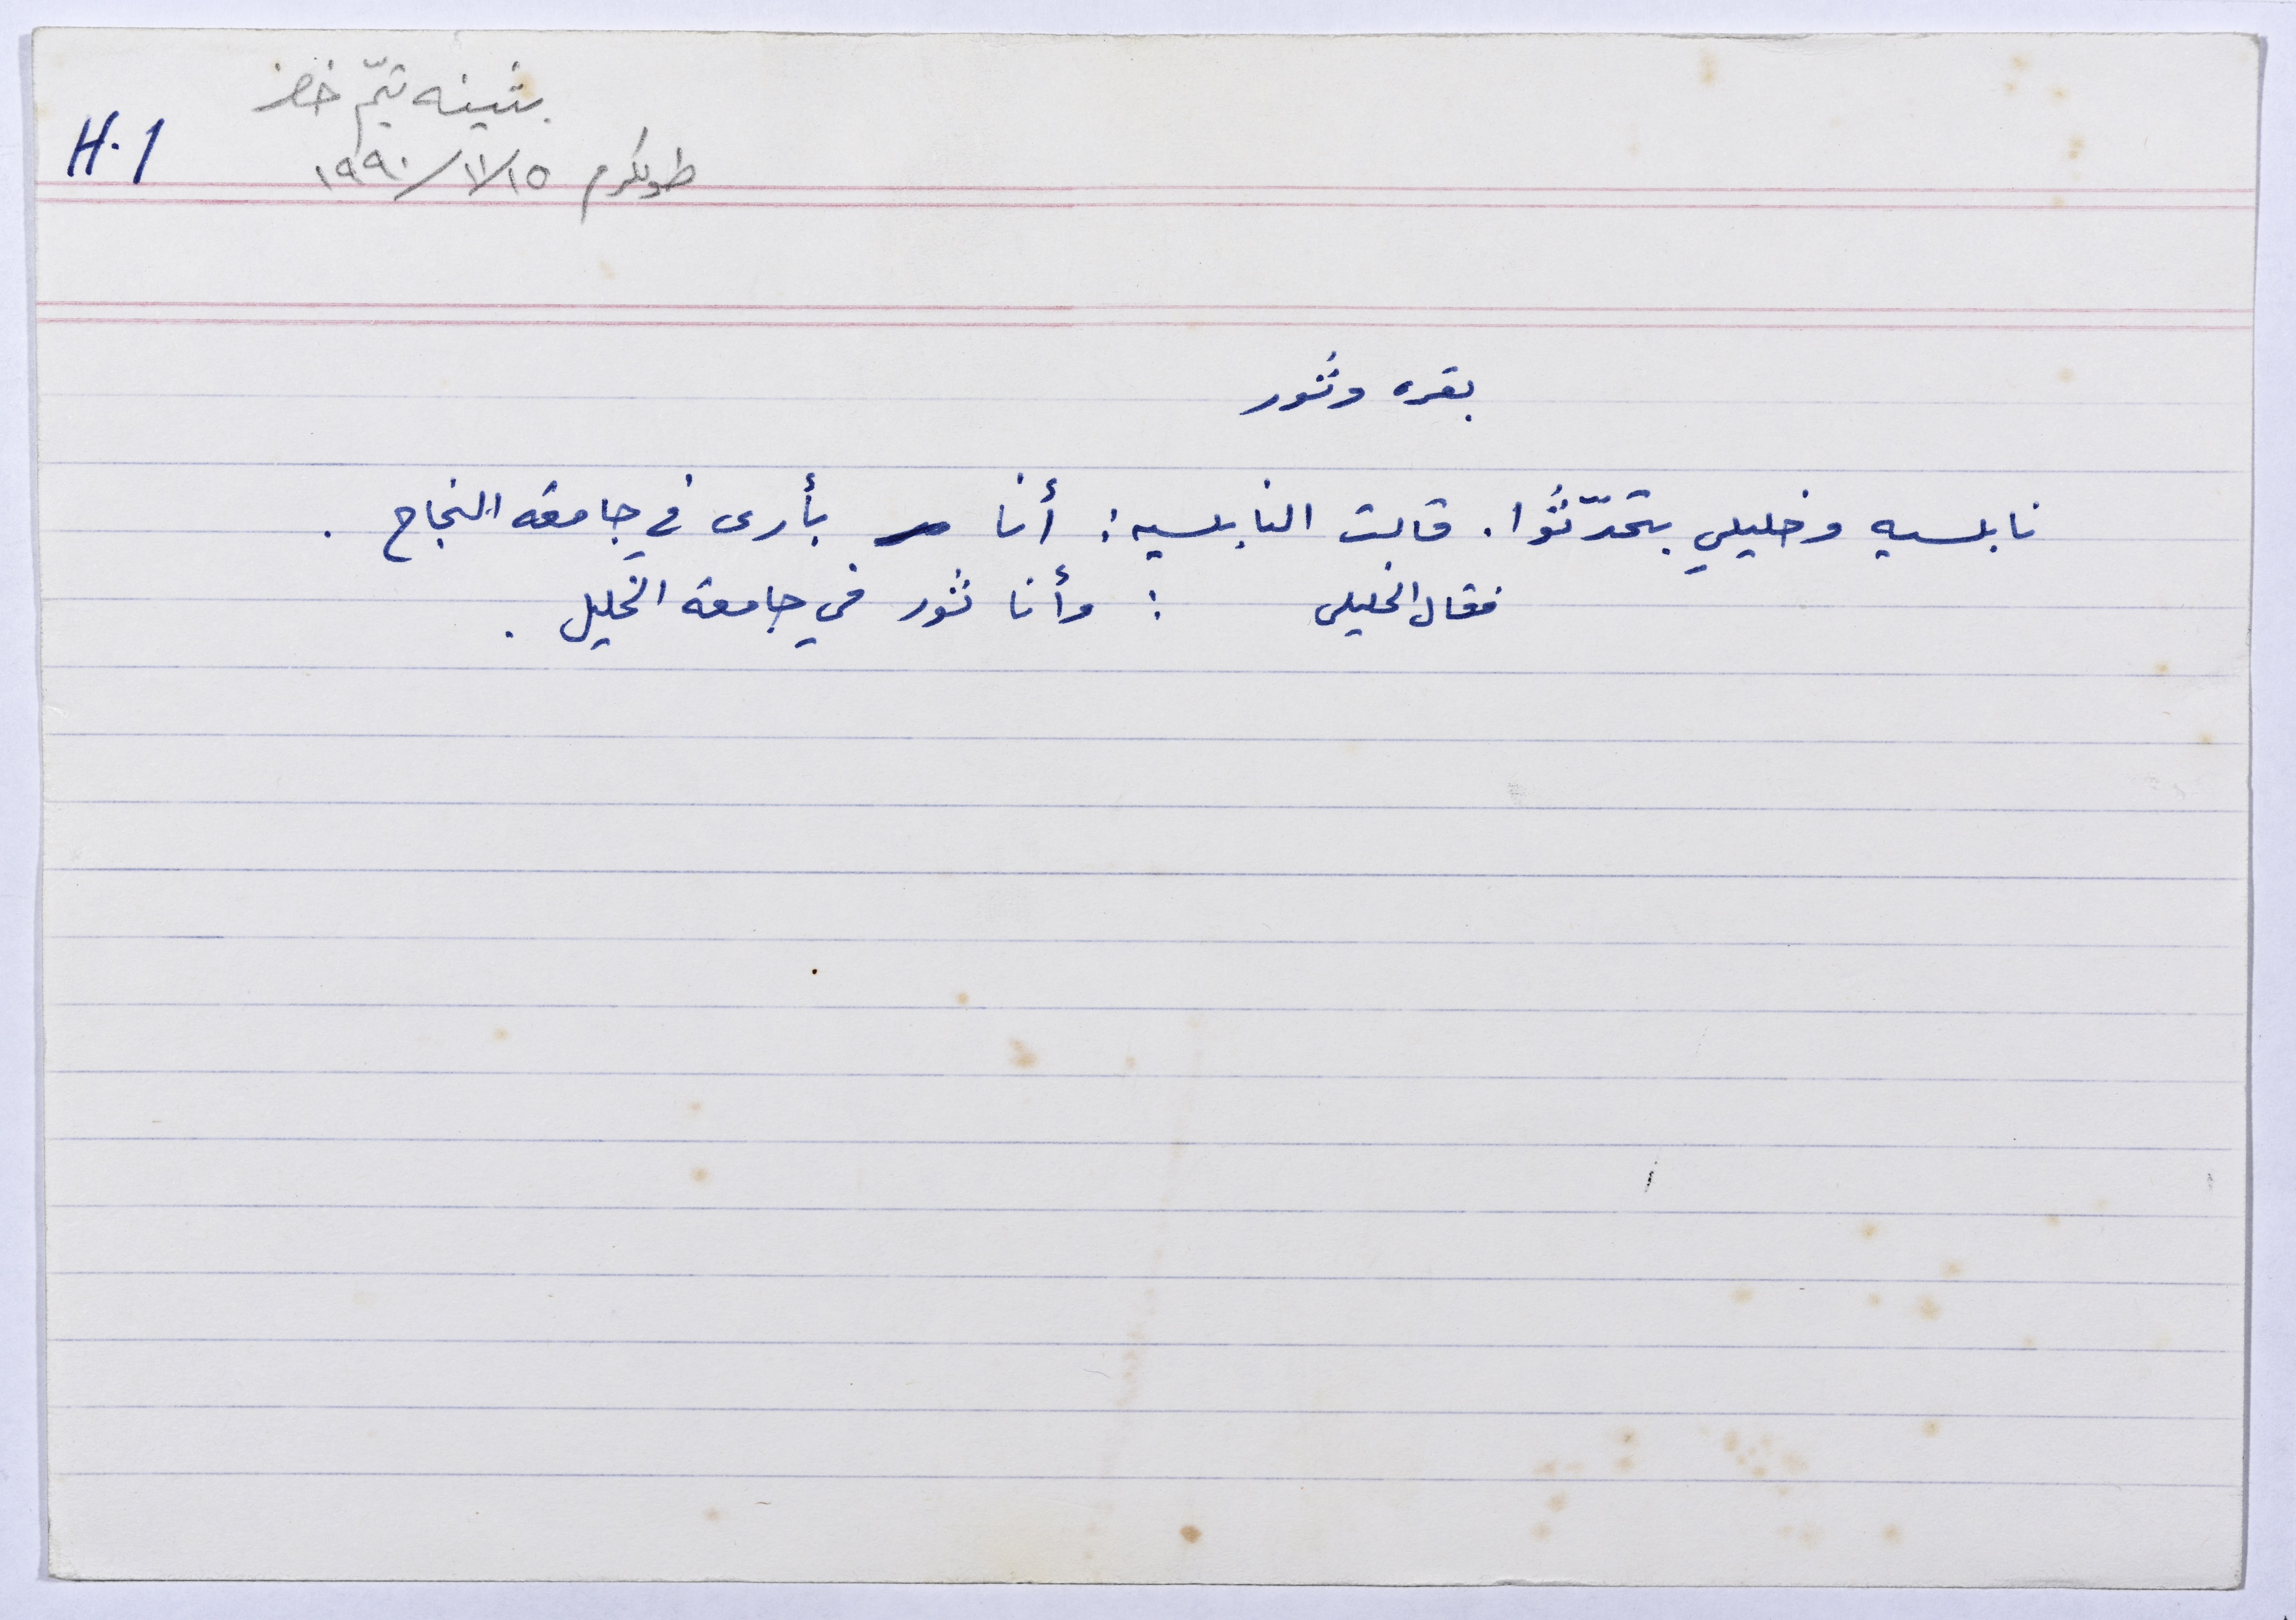 بثينه تيّم خضر
H.1
طولكرم ١٥/١١/١٩٩٠
بقره وثور
نابلسيه وخليلي بتحدّثوا. قالت النابلسيه: أنا بأرى في جامعة النجاح.
فقال الخليلي : وأنا ثور في جامعة الخليل.